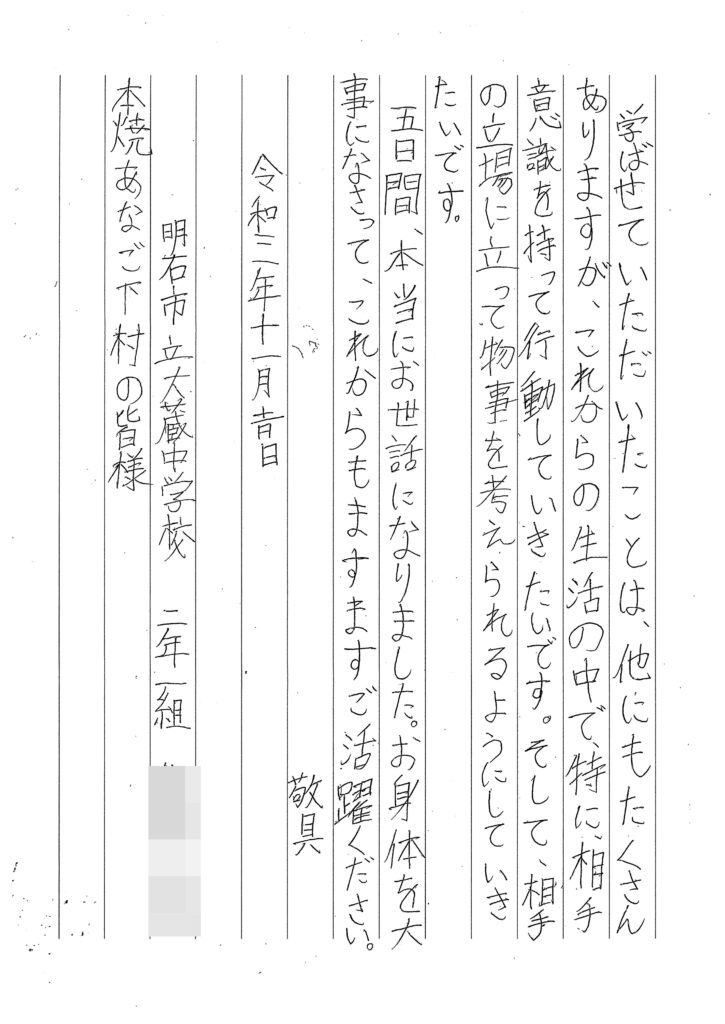 学ばせていただいたことは、他にもたくさん
ありますが、これからの生活の中で、特に、相手
意識を持って行動していきたいです。そして、相手
の立場に立って物事を考えられるようにしていき
たいです。
五日間、本当にお世話になりました。お身体を大
事になさって、これからもますますご活躍ください。
敬具
令和三年十一月吉日
明石市立大蔵中学校 二年一組
本焼あなご下村の皆様